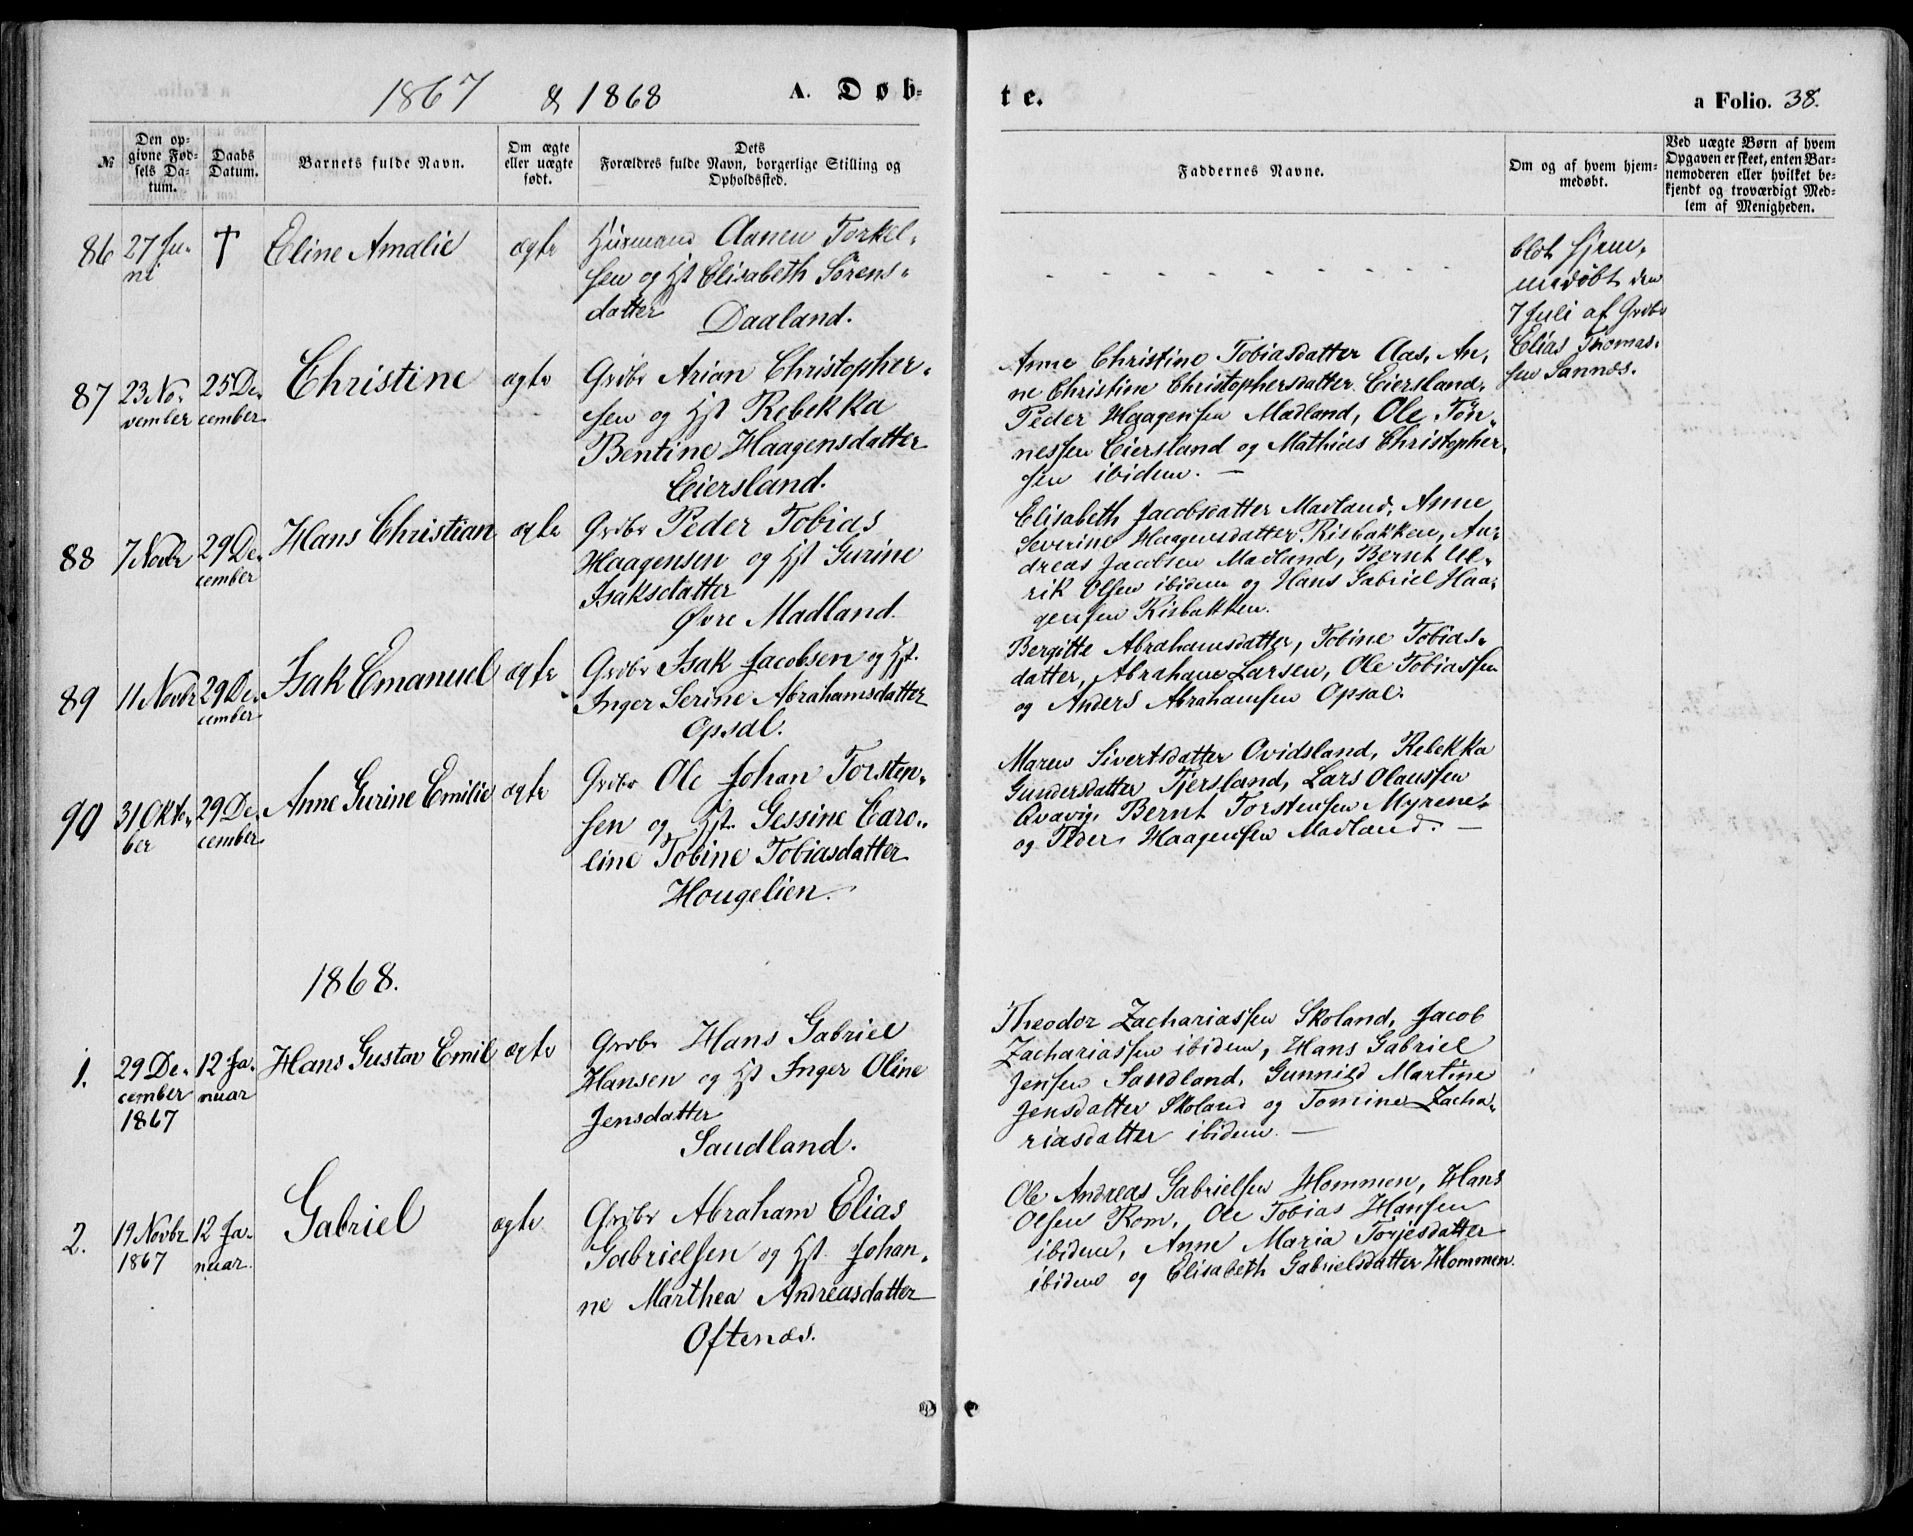 1867 & 1868 A. Døb-
te.
a Folio. 38.
№
Den op-
givne Fød-
sels Da-
tum.
Daabs
Datum.
Barnets fulde Navn.
Om ægte
eller uægte
født.
Dets
Forældres fulde Navn, borgerlige Stilling og
Opholdssted.
Faddernes Navne.
Om og af hvem hjem-
medøbt.
Ved uægte Børn af hvem
Opgaven er skeet, enten Bar-
nemoderen eller hvilket be-
kjendt og troværdigt Med-
lem af Menigheden.
86
27 Ju-
ni
†
Eline Amalie
ægte
Huusmand Aanen Torkel-
sen og Hst Elisabeth Sørens-
datter
Daaland.
blot hjem-
medøbt den
7 Juli af Grdbr
Elias Thomas-
sen Sannæs.
87
23 No-
vember
25 De-
cember
Christine
ægte
Grdbr Arian Christopher-
sen og Hst Rebekka
Bentine Haagensdatter
Eiersland.
Anne Christine Tobiasdatter Aas, An-
ne Christine Christophersdatter Eiersland,
Peder Haagensen Madland, Ole Tøn-
nessen Eiersland og Mathias Christopher-
sen ibidem. —
88
7 Novbr
29 De-
cember
Hans Christian
ægte
Grdbr Peder Tobias
Haagensen og Hst Gurine
Isaksdatter
Øvre Madland.
Elisabeth Jacobsdatter Madland, Anne
Severine Haagensdatter Risbakken, An-
dreas Jacobsen Madland, Bernt Ul-
rik Olsen ibidem og Hans Gabriel Haa-
gensen Risbakken.
89
11 Novbr
29 De-
cember
Isak Emanuel
ægte
Grdbr Isak Jacobsen og Hst.
Inger Serine Abrahamsdatter
Opsal.
Bergitte Abrahamsdatter, Tobine Tobias-
datter, Abraham Larsen, Ole Tobiassen
og Anders Abrahamsen Opsal.
90
31 Okto-
ber
29 De-
cember
Anne Gurine Emilie
ægte
Grdbr Ole Johan Torsten-
sen og Hst. Gessine Caro-
line Tobine Tobiasdatter
Hougelien.
Maren Sivertsdatter Ovidsland, Rebekka
Gundersdatter Fjersland, Lars Olaussen
Qvavig, Bernt Torstensen Myrene
og Peder Haagensen Madland. —
1868.
1.
29 De-
cember
1867
12 Ja-
nuar
Hans Gustav Emil
ægte
Grdbr Hans Gabriel
Hansen og Hst Inger Oline
Jensdatter
Saudland.
Theodor Zachariassen Skoland, Jacob
Zachariassen ibidem, Hans Gabriel
Jensen Saudland, Gunnild Martine
Jensdatter Skoland og Tomine Zacha-
riasdatter ibidem. —
2.
19 Novbr
1867
12 Ja-
nuar
Gabriel
ægte
Grdbr Abraham Elias
Gabrielsen og Hst. Johan-
ne Marthea Andreasdatter
Oftenæs.
Ole Andreas Gabrielsen Hommen, Hans
Olsen Rom, Ole Tobias Hansen
ibidem, Anne Maria Torjesdatter
ibidem og Elisabeth Gabrielsdatter Hommen.